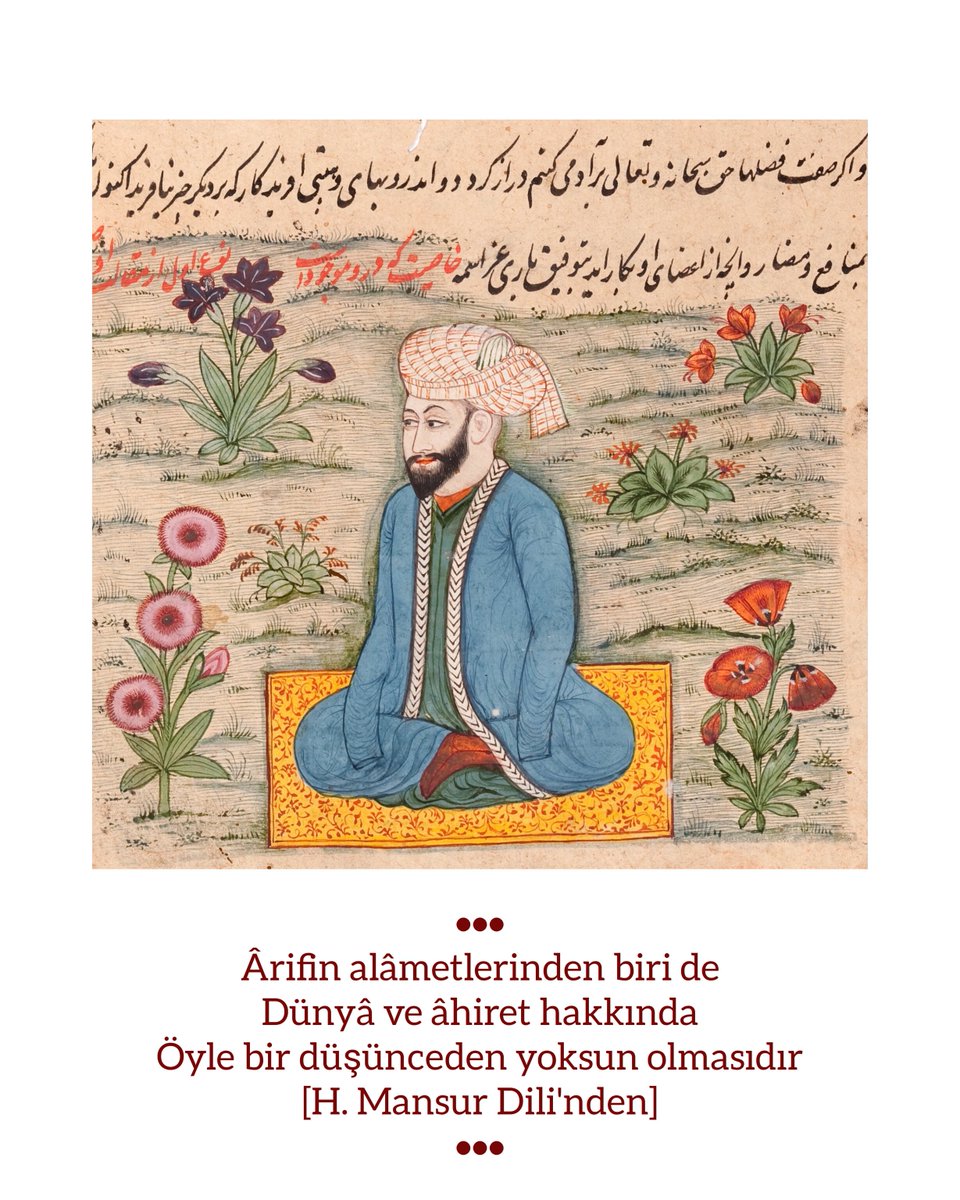 و اکر صفت فضلها حق سبحانه و تعالی بر آدمی کنم دراز کردد و اندرو بهای و
بمنافع و مضار و انچه از اعضای او بکار اید بتوفیق باری عز اسمه خاصیت نوع اول از مقالت
•••
Ârifin alâmetlerinden biri de
Dünyâ ve âhiret hakkında
Öyle bir düşünceden yoksun olmasıdır
[H. Mansur Dili'nden]
•••